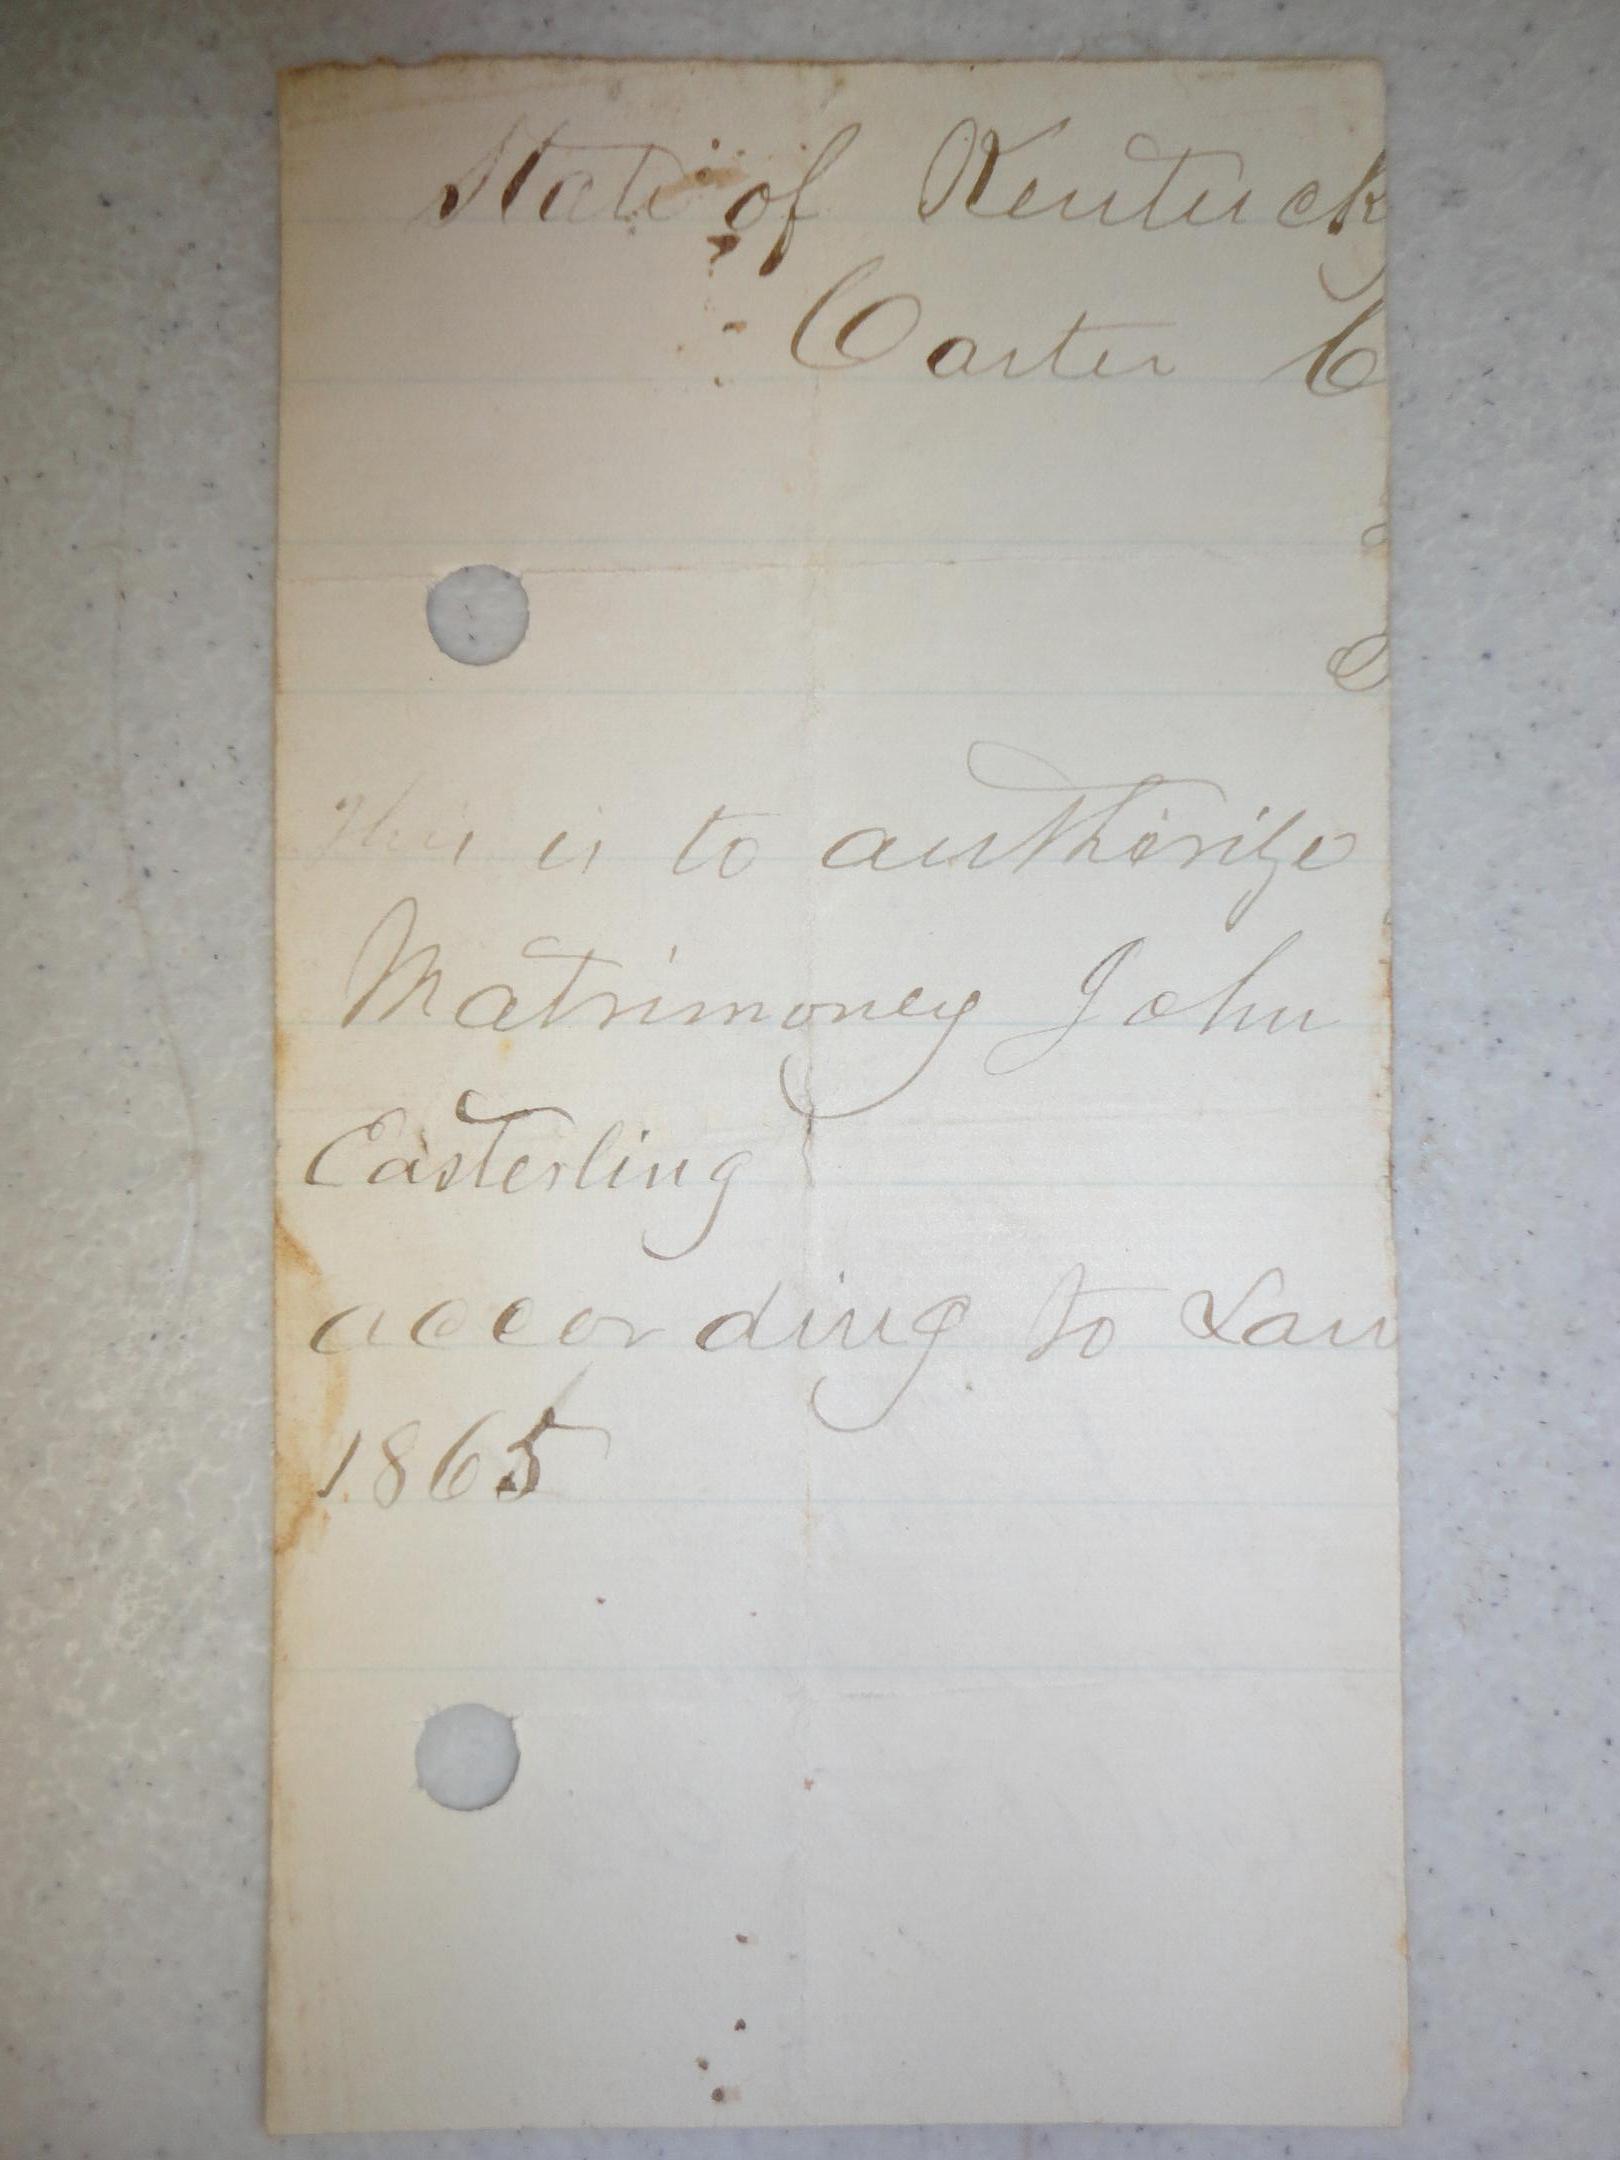 State of Kentuck
Carter C
This is to authorize
Matrimoney John
Easterling
according to Law
1865